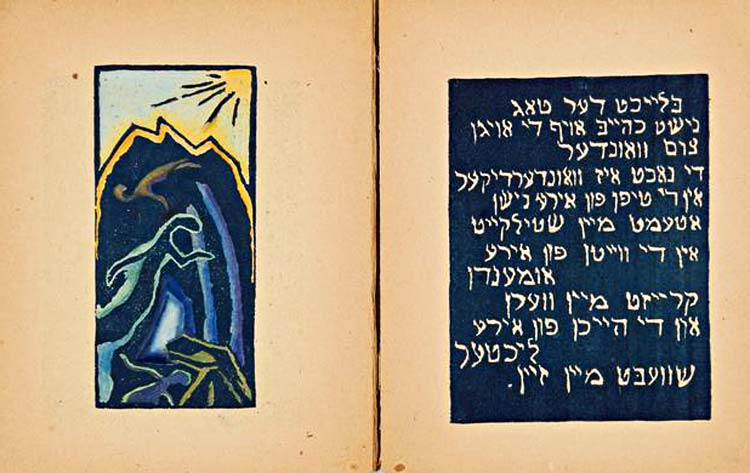 בלייכט דער טאג
נישט כהייב אויף די אויגן
צום וואונדער
די נאכט איז וואונדערדיקער
אין די טיפן פון אירע נישן
אטעמט מיין שטילקייט
אין די ווייטן פון אירע
אומענדן
קרייזט מיין וועקן
און די הייכן פון אירע
ליכטער
שוועבט מיין זיין.